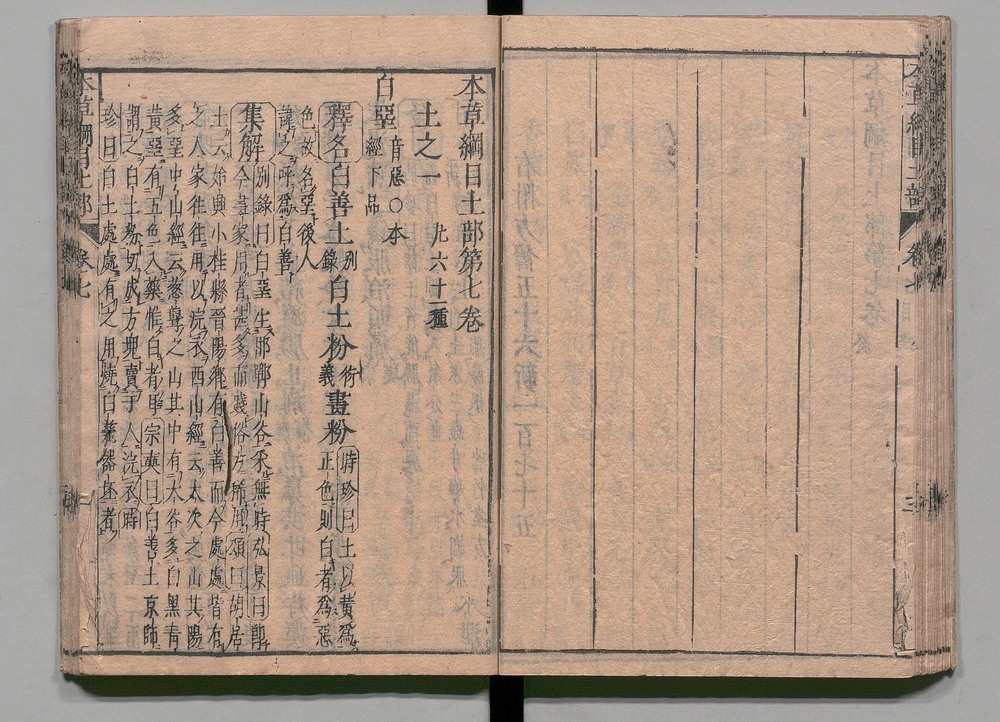 本草綱目土部第七卷
土之一 凡六十一種
白堊 音惡○本經下品
釋名白善土别錄白土粉衍義畫粉時珍曰土以黃爲正色則白者爲惡
色故名堊後人
諱之呼爲白善
集解别錄曰白堊生邯鄲山谷采無時弘景曰卽
今畫家用者甚多而賤俗方稀用頌曰胡居
士云始興小桂縣晉陽鄉有白善而今處處皆有
之人家往往用以浣衣西山經云大次之山其陽
多堊中山經云葱聾之山其中有大谷多白黑青
黃堊有五色入藥惟白者耳宗奭曰白善土京師
謂之白土粉切成方塊賣于人浣衣時
珍曰白土處處有之用燒白瓷器坯者
本草綱目土部 卷七 一